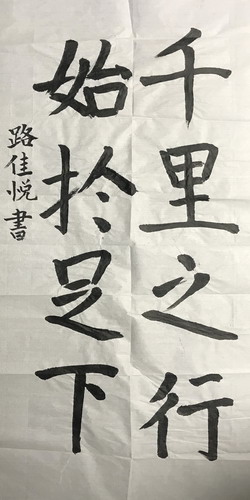 千里之行
始於足下
路佳悦書